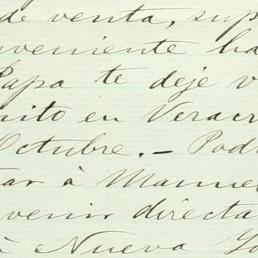 de venta, sup
veniente ha
Papa te deje v
ito en Veracr
Octubre. — Pod
tar à Manue
venir directa
à Nueva Yo